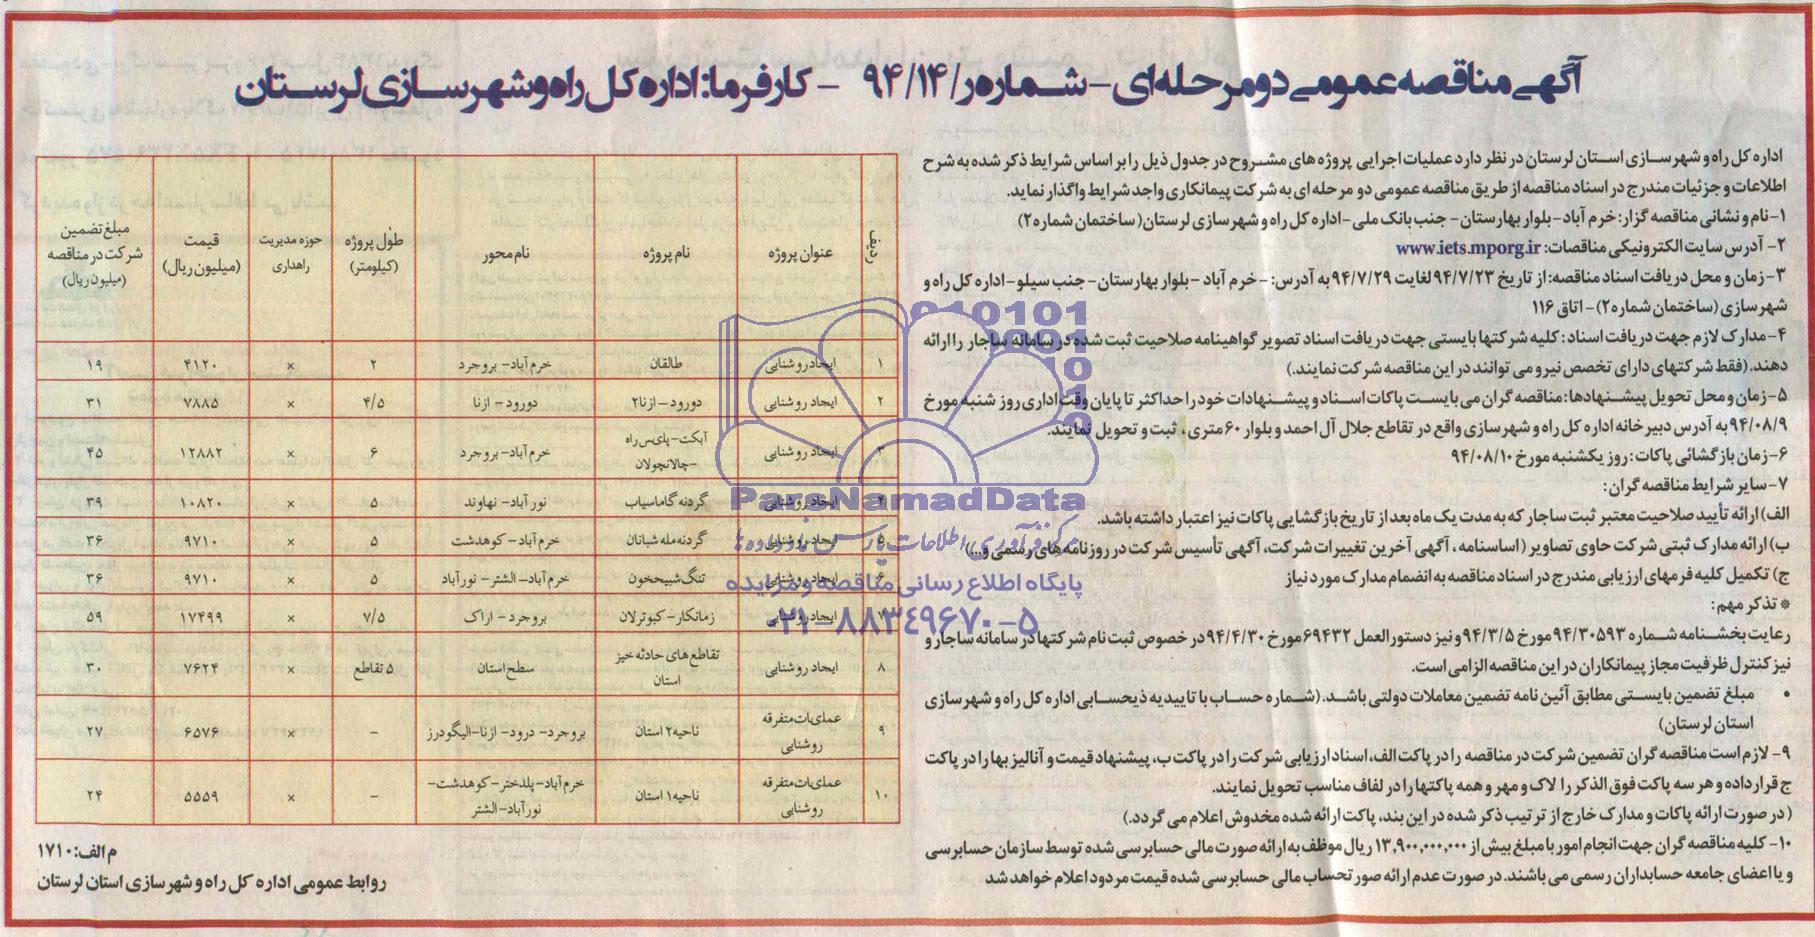 آگهی مناقصه عمومی دو مرحله ای - شماره ر/۹۴/۱۴ - کارفرما: اداره کل راه و شهرسازی لرستان
اداره کل راه و شهرسازی استان لرستان در نظر دارد عملیات اجرایی پروژه های مشروح در جدول ذیل را بر اساس شرایط ذکر شده به شرح
اطلاعات و جزئیات مندرج در اسناد مناقصه از طریق مناقصه عمومی دو مرحله ای به شرکت پیمانکاری واجد شرایط واگذار نماید.
۱- نام و نشانی مناقصه گزار: خرم آباد- بلوار بهارستان- جنب بانک ملی- اداره کل راه و شهرسازی لرستان( ساختمان شماره ۲)
۲- آدرس سایت الکترونیکی مناقصات: www.iets.mporg.ir
۳- زمان و محل دریافت اسناد مناقصه: از تاریخ ۹۴/۷/۲۳ لغایت ۹۴/۷/۲۹ به آدرس: - خرم آباد - بلوار بهارستان- جنب سیلو- اداره کل راه و
شهرسازی (ساختمان شماره ۲) - اتاق ۱۱۶
۴- مدارک لازم جهت دریافت اسناد: کلیه شرکتها بایستی جهت دریافت اسناد تصویر گواهینامه صلاحیت ثبت شده در سامانه ساجار را ارائه
دهند. (فقط شرکتهای دارای تخصص نیرو می توانند در این مناقصه شرکت نمایند.)
۵- زمان و محل تحویل پیشنهادها: مناقصه گران می بایست پاکات اسناد و پیشنهادات خود را حداکثر تا پایان وقت اداری روز شنبه مورخ
۹۴/۰۸/۹ به آدرس دبیرخانه اداره کل راه و شهرسازی واقع در تقاطع جلال آل احمد و بلوار ۶۰ متری، ثبت و تحویل نمایند.
۶- زمان بازگشائی پاکات: روز یکشنبه مورخ ۹۴/۰۸/۱۰
۷- سایر شرایط مناقصه گران:
الف) ارائه تأیید صلاحیت معتبر ثبت ساجار که به مدت یک ماه بعد از تاریخ بازگشایی پاکات نیز اعتبار داشته باشد.
ب) ارائه مدارک ثبتی شرکت حاوی تصاویر (اساسنامه، آگهی آخرین تغییرات شرکت، آگهی تأسیس شرکت در روزنامه های رسمی و...)
ج) تکمیل کلیه فرمهای ارزیابی مندرج در اسناد مناقصه به انضمام مدارک مورد نیاز
* تذکر مهم:
رعایت بخشنامه شماره ۹۴/۳۰۵۹۳ مورخ ۹۴/۳/۵ و نیز دستورالعمل ۶۹۴۳۲ مورخ ۹۴/۴/۳۰ در خصوص ثبت نام شرکتها در سامانه ساجار و
نیز کنترل ظرفیت مجاز پیمانکاران در این مناقصه الزامی است.
• مبلغ تضمین بایستی مطابق آئین نامه تضمین معاملات دولتی باشد. (شماره حساب با تاییدیه ذیحسابی اداره کل راه و شهرسازی
استان لرستان)
۹- لازم است مناقصه گران تضمین شرکت در مناقصه را در پاکت الف، اسناد ارزیابی شرکت را در پاکت ب، پیشنهاد قیمت و آنالیز بها را در پاکت
ج قرار داده و هر سه پاکت فوق الذکر را لاک و مهر و همه پاکتها را در لفاف مناسب تحویل نمایند.
( در صورت ارائه پاکات و مدارک خارج از ترتیب ذکر شده در این بند، پاکت ارائه شده مخدوش اعلام می گردد.)
۱۰- کلیه مناقصه گران جهت انجام امور با مبلغ بیش از ۱۳,۹۰۰,۰۰۰,۰۰۰ ریال موظف به ارائه صورت مالی حسابرسی شده توسط سازمان حسابرسی
و یا اعضای جامعه حسابداران رسمی می باشند. در صورت عدم ارائه صورتحساب مالی حسابرسی شده قیمت مردود اعلام خواهد شد
ردیف | عنوان پروژه | نام پروژه | نام محور | طول پروژه (کیلومتر) | حوزه مدیریت راهداری | قیمت (میلیون ریال) | مبلغ تضمین شرکت در مناقصه (میلیون ریال)
۱ | ایجاد روشنایی | طالقان | خرم آباد- بروجرد | ۲ | × | ۴۱۲۰ | ۱۹
۲ | ایجاد روشنایی | دورود- ازنا۲ | دورود- ازنا | ۴/۵ | × | ۷۸۸۵ | ۳۱
۳ | ایجاد روشنایی | آبکت- پلی س راه -چالانچولان | خرم آباد- بروجرد | ۶ | × | ۱۲۸۸۲ | ۴۵
۴ | ایجاد روشنایی | گردنه گاماسیاب | نور آباد- نهاوند | ۵ | × | ۱۰۸۲۰ | ۳۹
۵ | ایجاد روشنایی | گردنه مله شبانان | خرم آباد- کوهدشت | ۵ | × | ۹۷۱۰ | ۳۶
۶ | ایجاد روشنایی | تنگ شبیحخون | خرم آباد- الشتر- نورآباد | ۵ | × | ۹۷۱۰ | ۳۶
۷ | ایجاد روشنایی | زمانکار- کبوترلان | بروجرد- اراک | ۷/۵ | × | ۱۷۴۹۹ | ۵۹
۸ | ایجاد روشنایی | تقاطع های حادثه خیز استان | سطح استان | ۵ تقاطع | × | ۷۶۲۴ | ۳۰
۹ | عملی ات متفرقه روشنایی | ناحیه ۲ استان | بروجرد- درود- ازنا- الیگودرز | - | × | ۶۵۷۶ | ۲۷
۱۰ | عملی ات متفرقه روشنایی | ناحیه ۱ استان | خرم آباد- پلدختر- کوهدشت- نورآباد- الشتر | - | × | ۵۵۵۹ | ۲۴
م الف: ۱۷۱۰
روابط عمومی اداره کل راه و شهرسازی استان لرستان
ParsNamadData
مرکز فرآوری اطلاعات پارس نماد داده ها
پایگاه اطلاع رسانی مناقصه و مزایده
۰۲۱-۸۸۳۴۹۶۷۰-۵